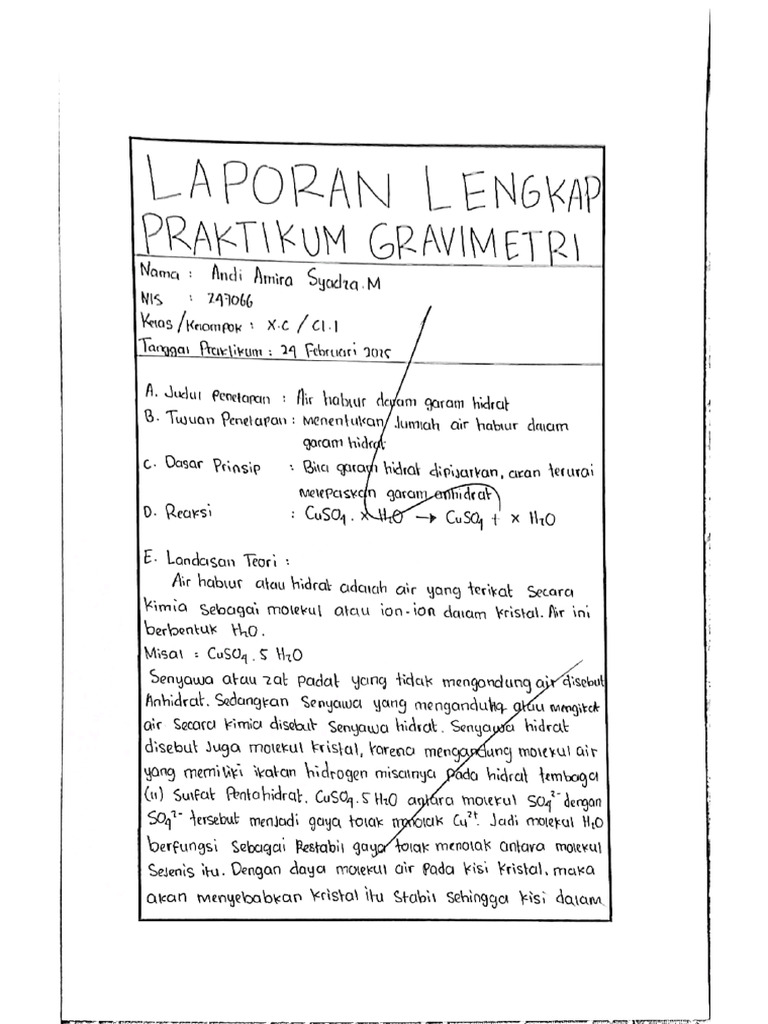 LAPORAN LENGKAP
PRAKTIKUM GRAVIMETRI
Nama : Andi Amira Syadza.M
NIS : 247066
Kelas/Kelompok : X.C / C1.1
Tanggal Praktikum : 24 Februari 2025
A. Judul Penetapan : Air hablur dalam garam hidrat
B. Tujuan Penetapan : Menentukan Jumlah air hablur dalam
garam hidrat
C. Dasar Prinsip : Bila garam hidrat dipijarkan, akan terurai
melepaskan garam anhidrat
D. Reaksi : CuSO₄ . x H₂O → CuSO₄ + x H₂O
E. Landasan Teori :
Air hablur atau hidrat adalah air yang terikat Secara
kimia Sebagai molekul atau ion-ion dalam kristal. Air ini
berbentuk H₂O.
Misal : CuSO₄ . 5 H₂O
Senyawa atau zat padat yang tidak mengandung air disebut
Anhidrat. Sedangkan Senyawa yang mengandung atau mengikat
air Secara kimia disebut Senyawa hidrat. Senyawa hidrat
disebut Juga molekul kristal, karena mengandung molekul air
yang memiliki ikatan hidrogen misalnya pada hidrat tembaga
(II) Sulfat Pentahidrat. CuSO₄ . 5 H₂O antara molekul SO₄²⁻ dengan
SO₄²⁻ tersebut menjadi gaya tolak menolak Cu²⁺. Jadi molekul H₂O
berfungsi Sebagai Pestabil gaya tolak menolak antara molekul
Sejenis itu. Dengan daya molekul air pada kisi kristal, maka
akan menyebabkan kristal itu Stabil Sehingga kisi dalam